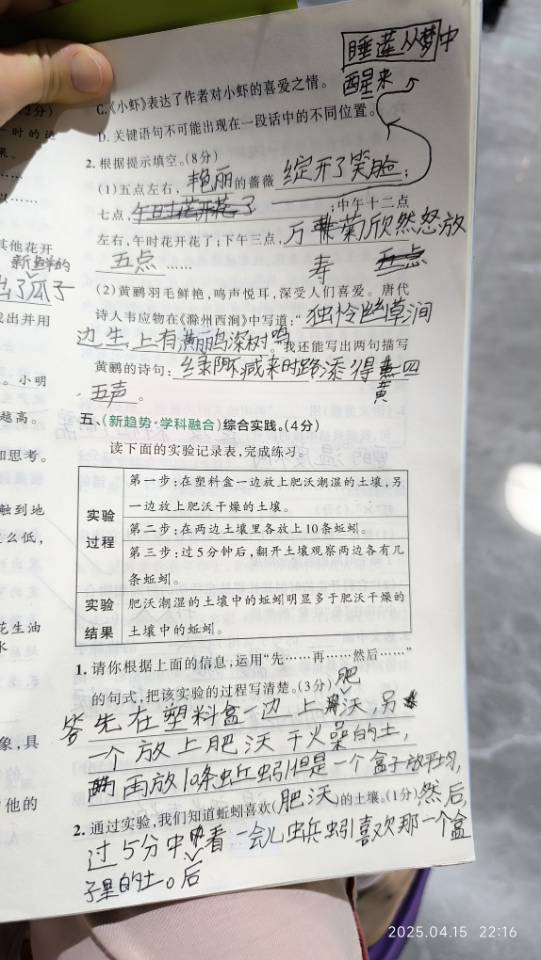 睡莲从梦中
醒来
C.《小虾》表达了作者对小虾的喜爱之情。
D.关键语句不可能出现在一段话中的不同位置。
2.根据提示填空。(8分)
(1)五点左右,艳丽的蔷薇绽开了笑脸;
七点,午时花开花了;中午十二点
左右,午时花开花了;下午三点,万寿菊欣然怒放
五点……
(2)黄鹂羽毛鲜艳,鸣声悦耳,深受人们喜爱。唐代
诗人韦应物在《滁州西涧》中写道:“独怜幽草涧
边生,上有黄鹂深树鸣。我还能写出两句描写
黄鹂的诗句:绿阴不减来时路添得黄四
五声。
五、(新趋势·学科融合)综合实践。(4分)
读下面的实验记录表,完成练习。
实验
过程
第一步:在塑料盒一边放上肥沃潮湿的土壤,另
一边放上肥沃干燥的土壤。
第二步:在两边土壤里各放上10条蚯蚓。
第三步:过5分钟后,翻开土壤观察两边各有几
条蚯蚓。
实验
结果
肥沃潮湿的土壤中的蚯蚓明显多于肥沃干燥的
土壤中的蚯蚓。
1.请你根据上面的信息,运用“先……再……然后……”
的句式,把该实验的过程写清楚。(3分)
答先在塑料盒一边上肥沃,另
一个放上肥沃干火燥的土,
再放10条蚯蚓但是一个盒子放平均,
2.通过实验,我们知道蚯蚓喜欢(肥沃)的土壤。(1分)然后,
过5分中后看一会儿蚯蚓喜欢那一个盒
子里的土。
其他花开
新鲜的
出了瓜子
找出并用
。小明
越高。
和思考。
触到地
么低,
花生油
象,具
他的
2025.04.15 22:16